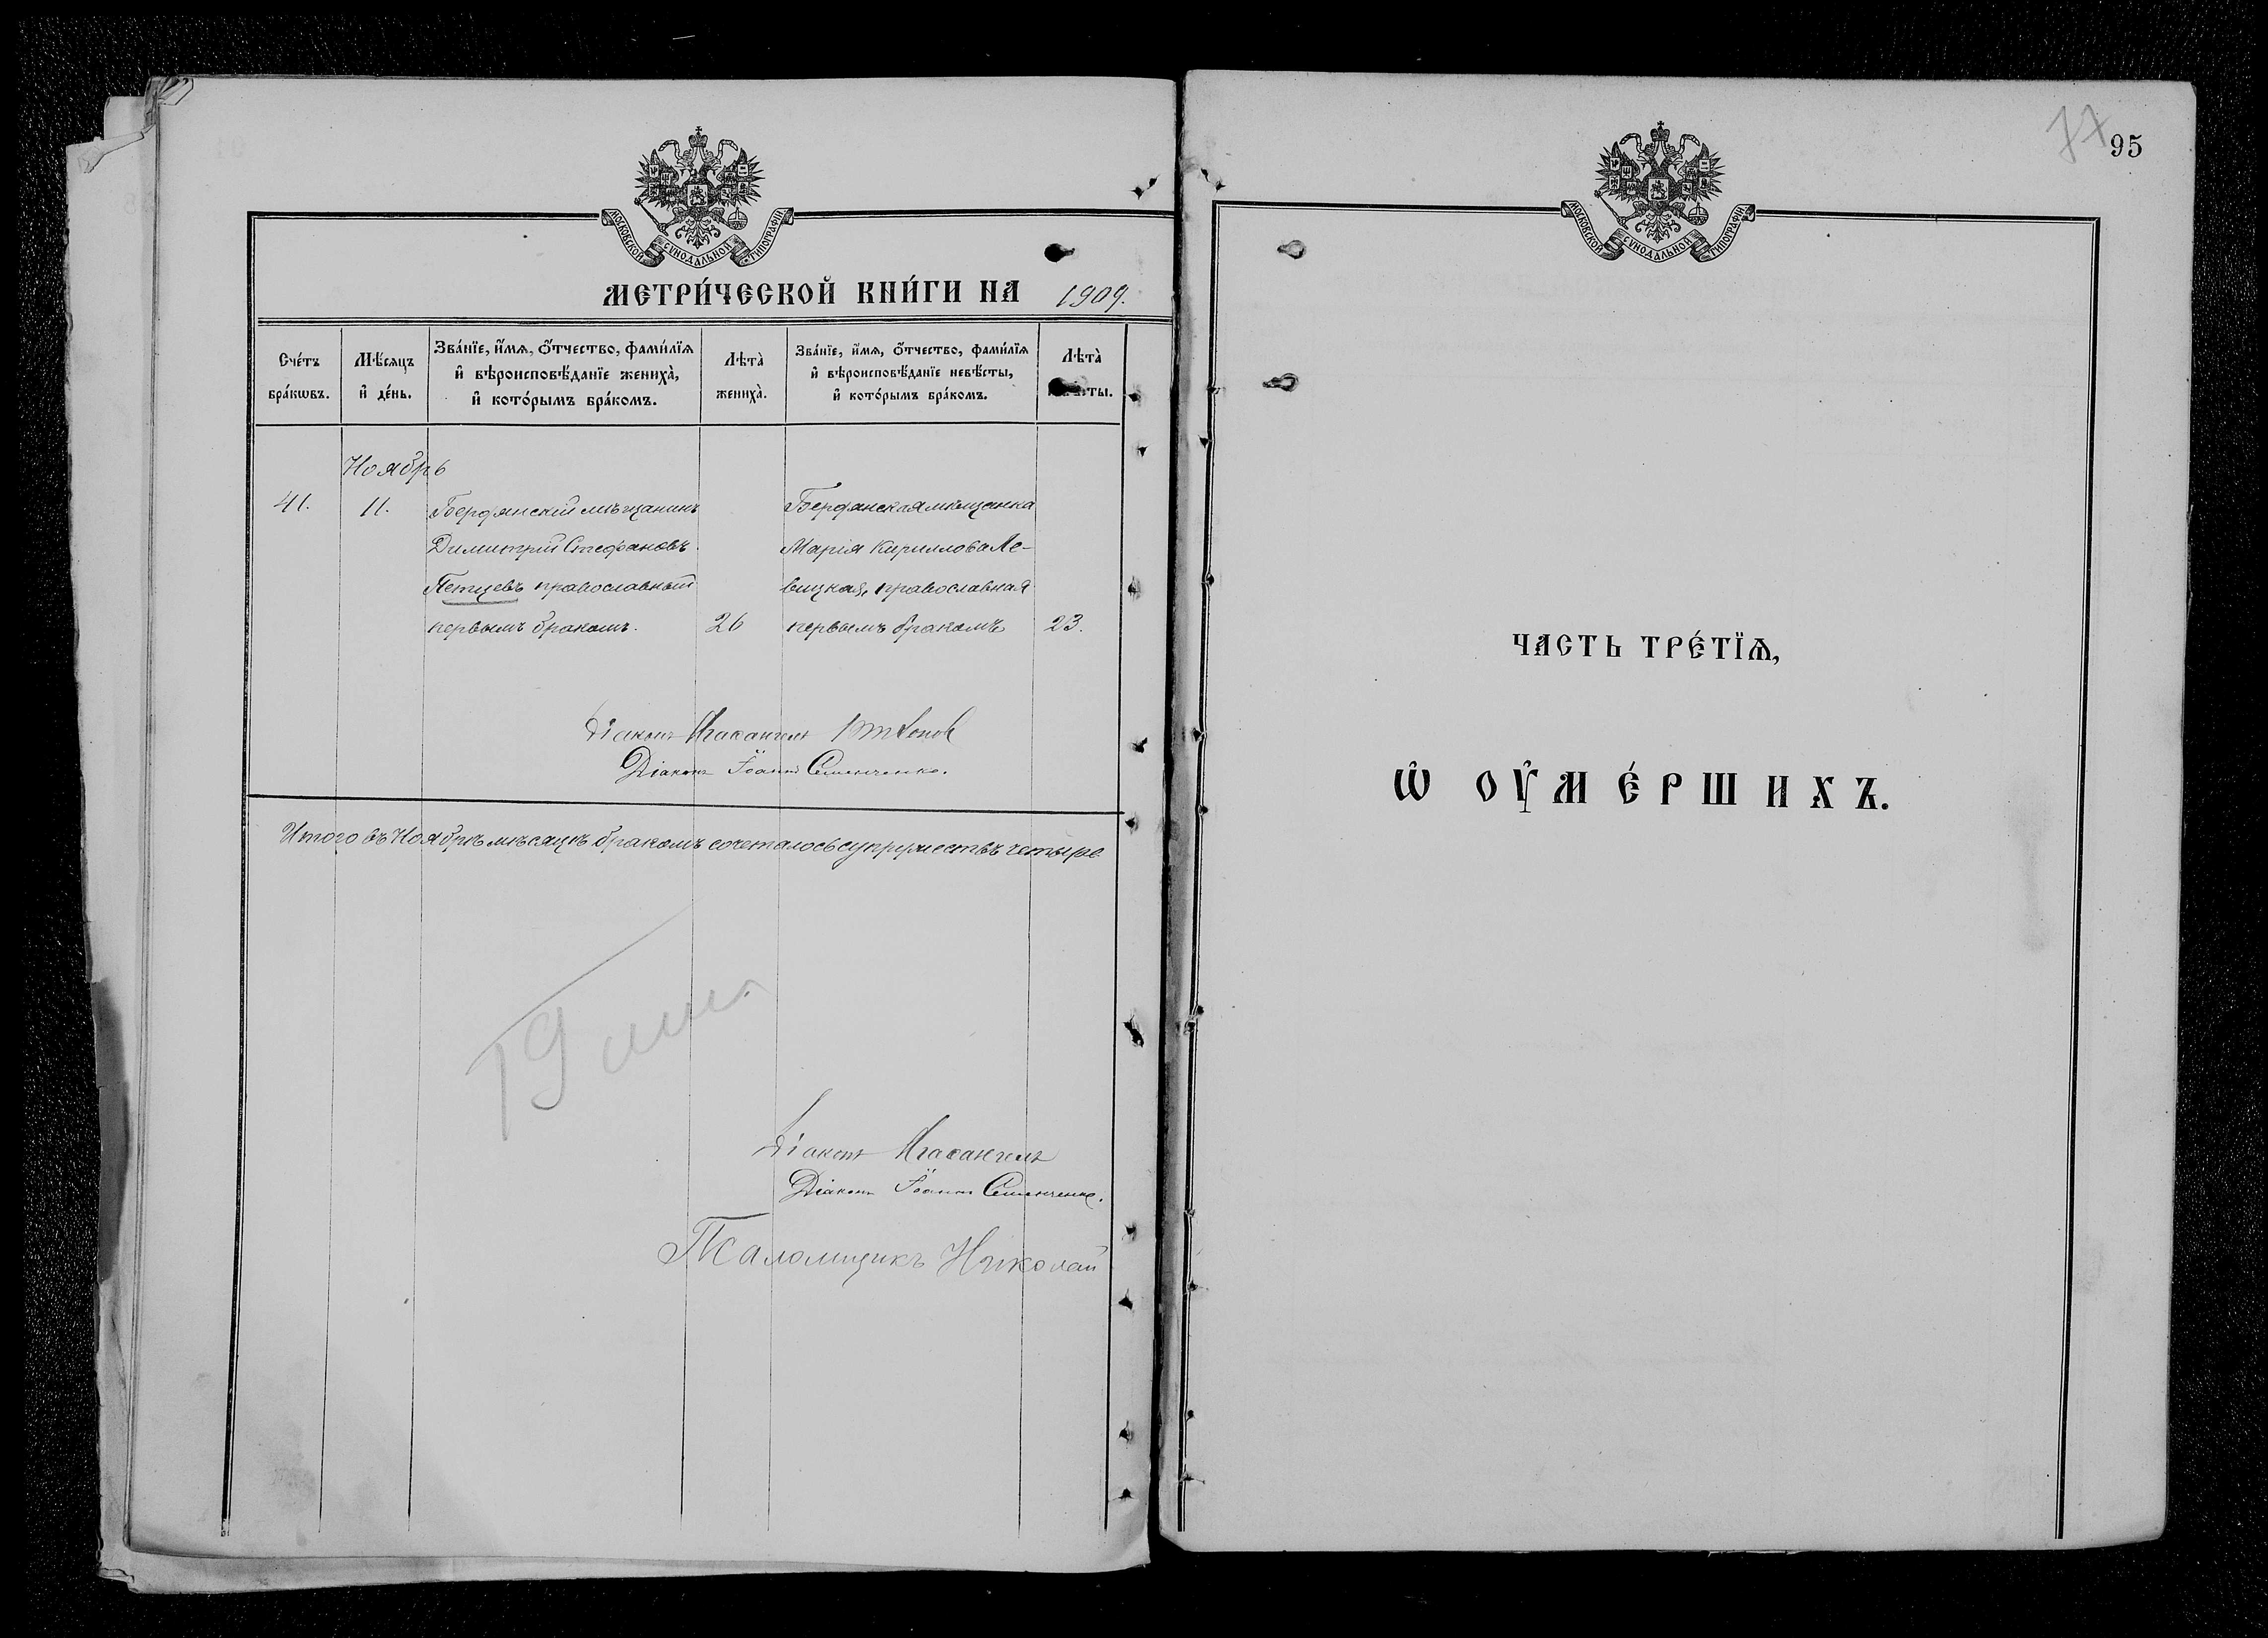 МОСКОВСКОЙ СѴНОДАЛЬНОЙ ТИПОГРАФІИ
МЕТРИ́ЧЕСКОЙ КНИ́ГИ НА 1909.
Сче́тъ бра́кѡвъ.
Мѣ́сяцъ и҆ де́нь.
Зва́нїе, и҆́мѧ, ѻ҆́тчество, фами́лїѧ
и҆ вѣроисповѣ́данїе жениха̀,
и҆ кото́рымъ бра́комъ.
Лѣта̀ жениха̀.
Зва́нїе, и҆́мѧ, ѻ҆́тчество, фами́лїѧ
и҆ вѣроисповѣ́данїе невѣ́сты,
и҆ кото́рымъ бра́комъ.
Лѣта̀
Ноябрь
41.
11.
Бердянскій мѣщанинъ
Димитрій Стефановъ
Петцевъ православный
первымъ бракомъ.
26
Бердянская мѣщанка
Марія Кириллова Ле-
вицкая, православная
первымъ бракомъ
23.
Діаконъ
Діаконъ Іоаннъ Семенченко.
Итого въ Ноябрѣ мѣсяцѣ бракомъ сочеталось супружествъ четыре
19
Діаконъ
Діаконъ Іоаннъ Семенченко.
Псаломщикъ Николай
77
95
МОСКОВСКОЙ СѴНОДАЛЬНОЙ ТИПОГРАФІИ
ЧАСТЬ ТРЕ́ТЇѦ,
Ѡ҆ ОУ҆МЕ́РШИХЪ.